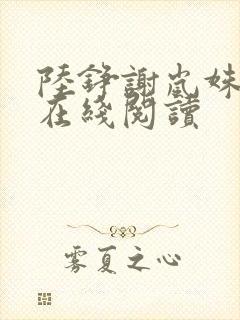 陸錚謝嵐姝
在綫閱讀
雾夏之心